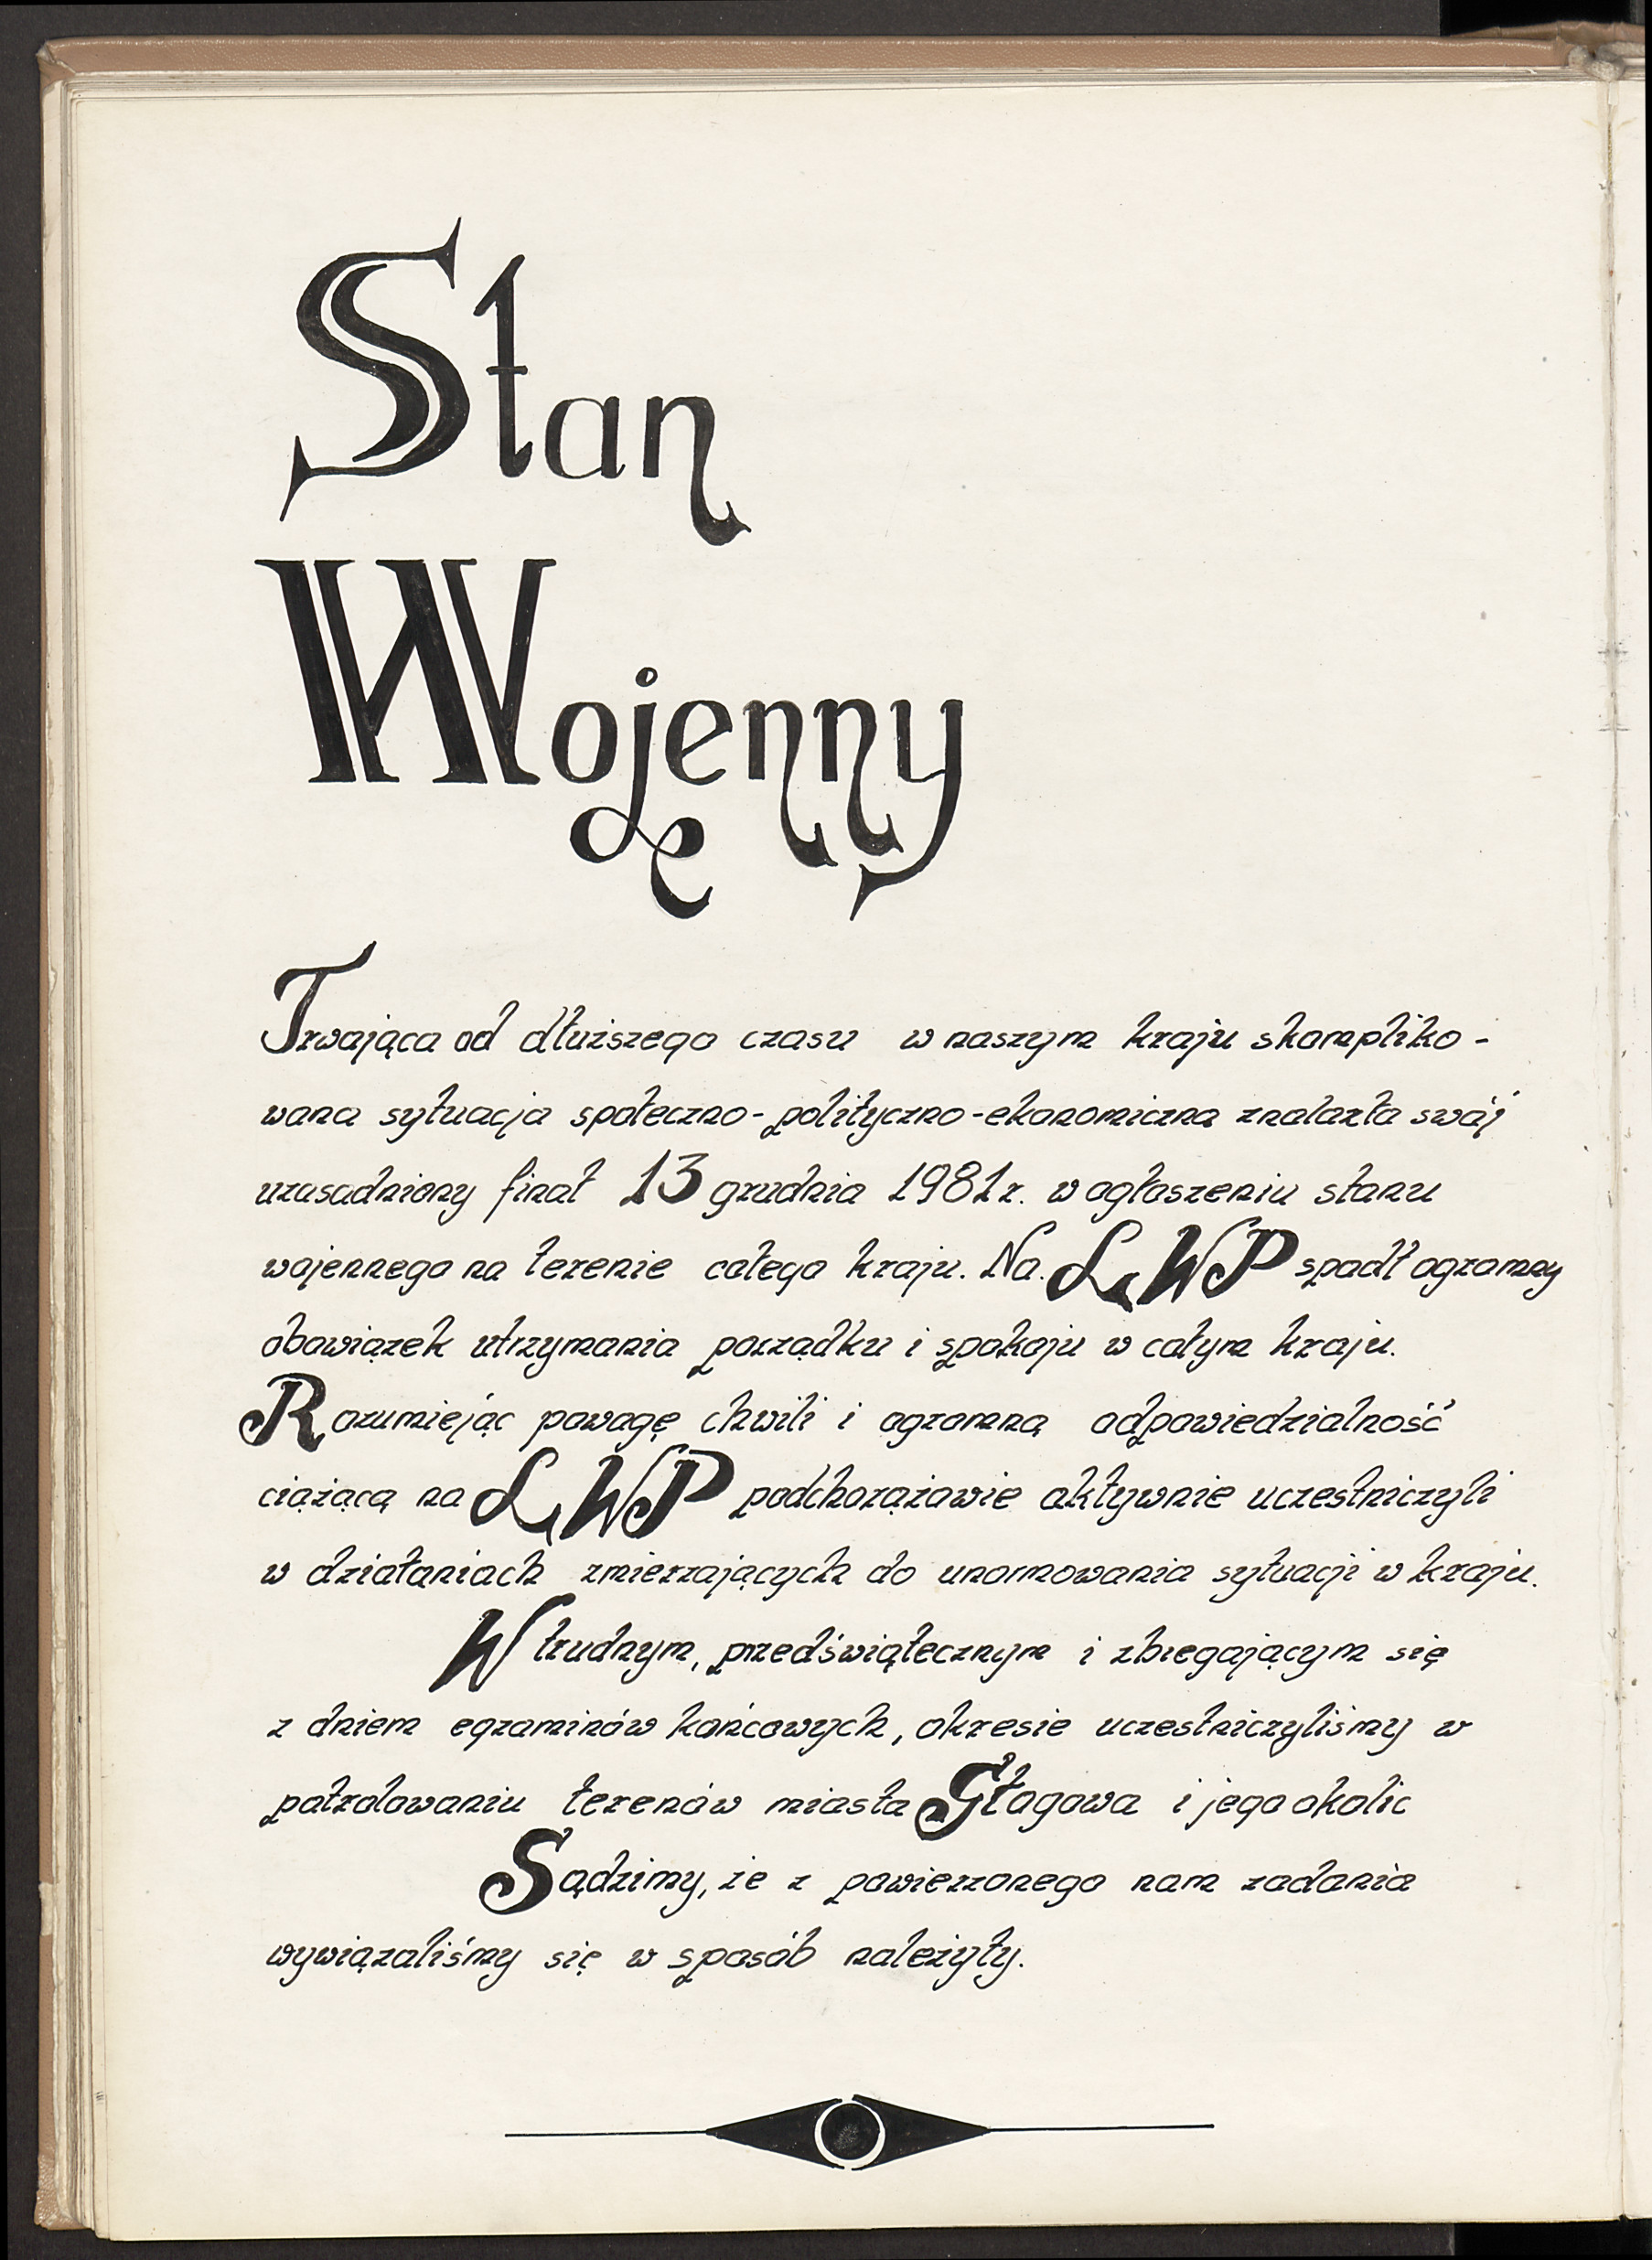 Stan
Wojenny
Trwająca od dłuższego czasu w naszym kraju skompliko-
wana sytuacja społeczno-polityczno-ekonomiczna znalazła swój
uzasadniony finał 13 grudnia 1981 r. w ogłoszeniu stanu
wojennego na terenie całego kraju. Na. LWP spadł ogromny
obowiązek utrzymania porządku i spokoju w całym kraju.
Rozumiejąc powagę chwili i ogromną odpowiedzialność
ciążącą na LWP podchorążowie aktywnie uczestniczyli
w działaniach zmierzających do unormowania sytuacji w kraju.
W trudnym, przedświątecznym i zbiegającym się
z dniem egzaminów końcowych, okresie uczestniczyliśmy w
patrolowaniu terenów miasta Głogowa i jego okolic
Sądzimy, że z powierzonego nam zadania
wywiązaliśmy się w sposób należyty.